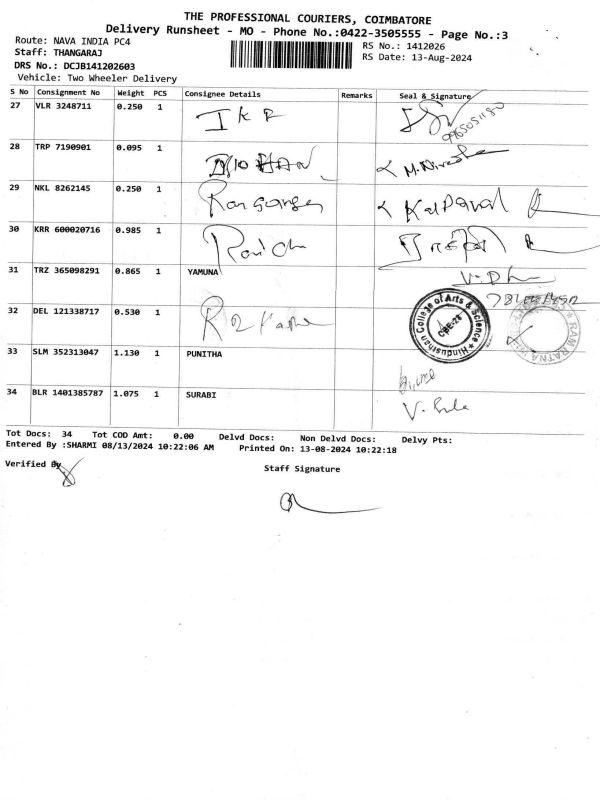 THE PROFESSIONAL COURIERS, COIMBATORE
Delivery Runsheet - MO - Phone No.:0422-3505555 - Page No.:3
Route: NAVA INDIA PC4
RS No.: 1412026
Staff: THANGARAJ
RS Date: 13-Aug-2024
DRS No.: DCJB141202603
Vehicle: Two Wheeler Delivery
S No Consignment No Weight PCS Consignee Details Remarks Seal & Signature
27 VLR 3248711 0.250 1
28 TRP 7190901 0.095 1
29 NKL 8262145 0.250 1
30 KRR 600020716 0.985 1
31 TRZ 365098291 0.865 1 YAMUNA
32 DEL 121338717 0.530 1
Hindusthan College of Arts & Science
33 SLM 352313047 1.130 1 PUNITHA
34 BLR 1401385787 1.075 1 SURABI
Tot Docs: 34 Tot COD Amt: 0.00 Delvd Docs: Non Delvd Docs: Delvy Pts:
Entered By :SHARMI 08/13/2024 10:22:06 AM Printed On: 13-08-2024 10:22:18
Verified By
Staff Signature